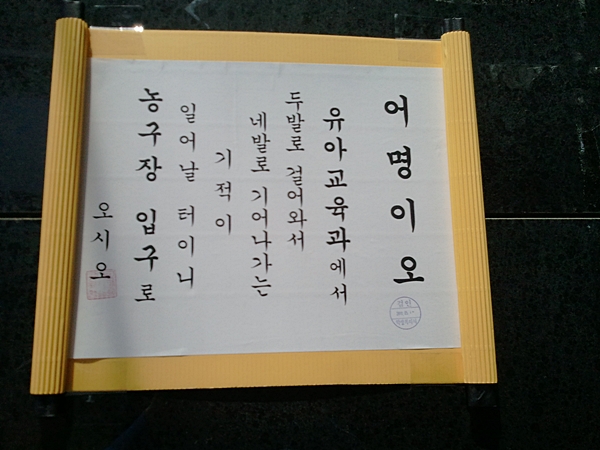 어명이오
유아교육과에서
두발로 걸어와서
네발로 기어나가는
기적이
일어날 터이니
농구장 입구로
오시오